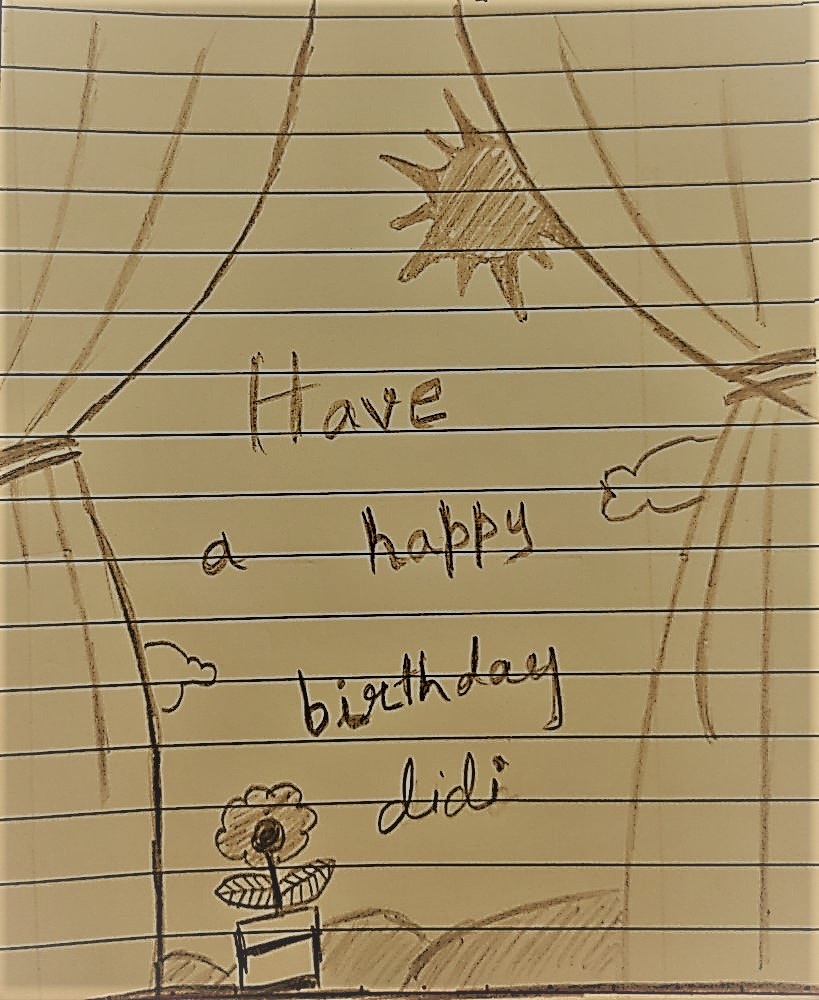 Have
a happy
birthday
didi